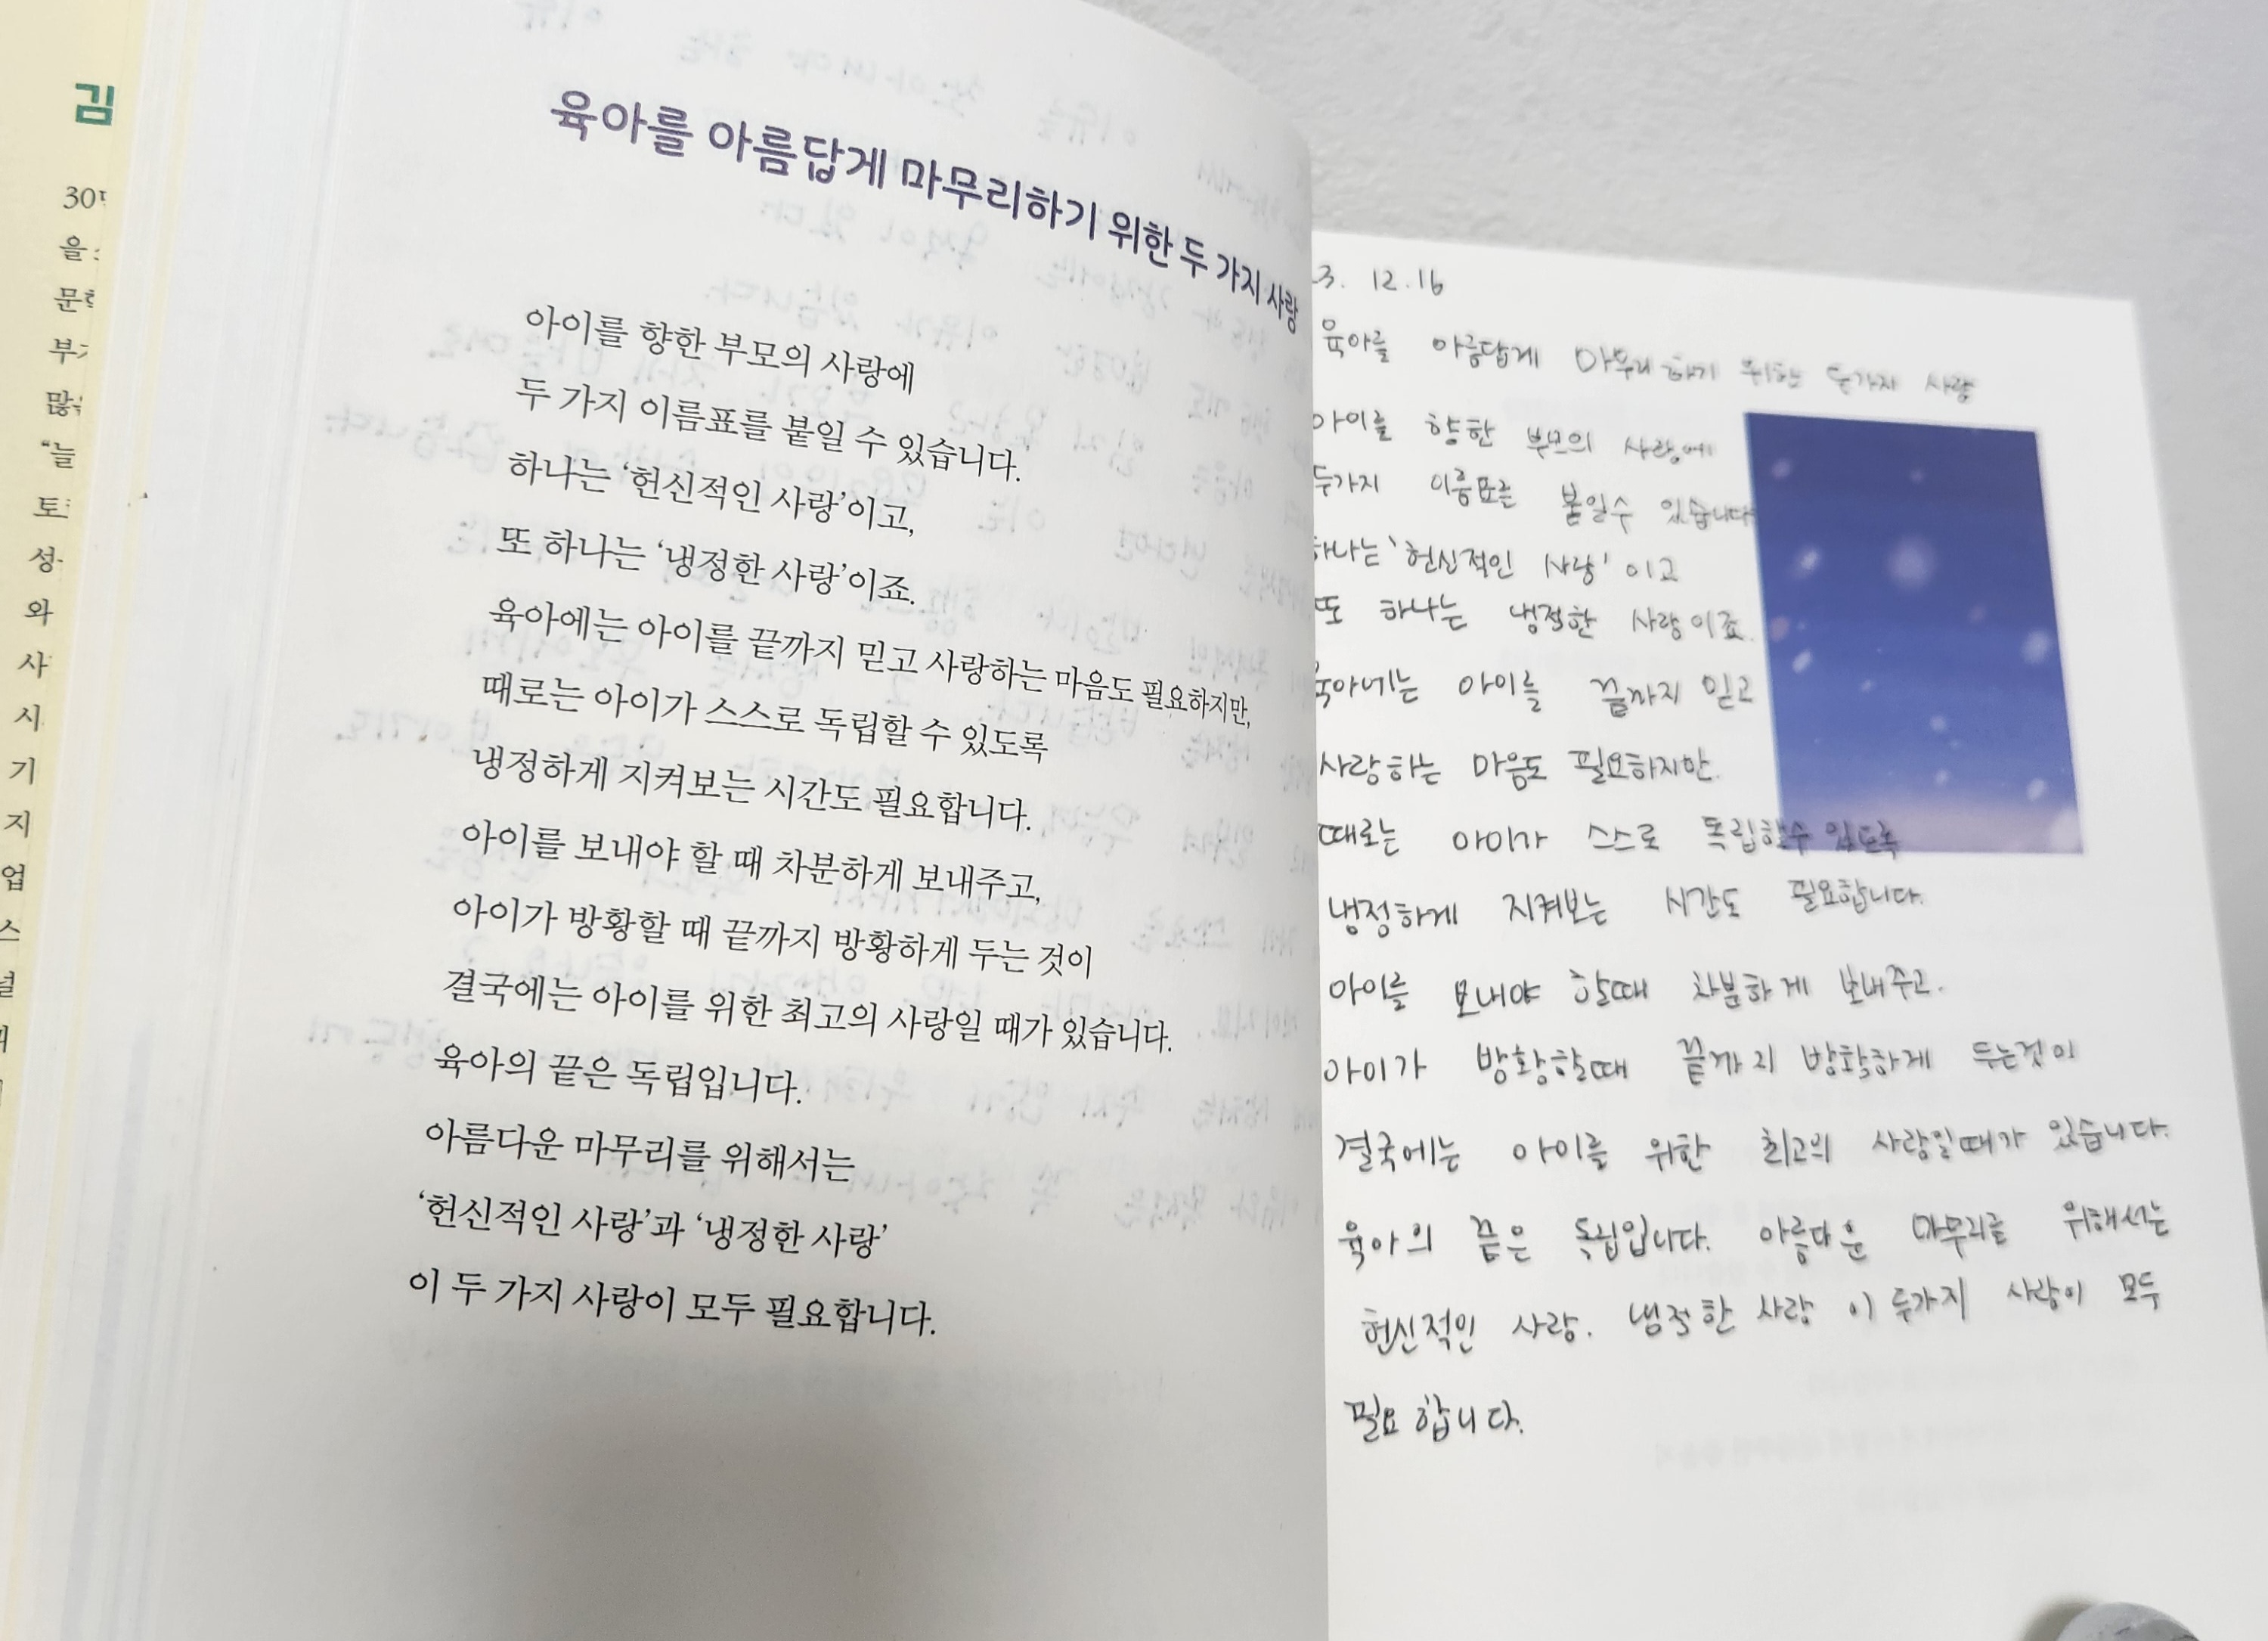 김
30
을
문
부
많
“늘
토
성
와
사
시
기
지
업
스
육아를 아름답게 마무리하기 위한 두 가지 사랑
아이를 향한 부모의 사랑에
두 가지 이름표를 붙일 수 있습니다.
하나는 ‘헌신적인 사랑’이고,
또 하나는 ‘냉정한 사랑’이죠.
육아에는 아이를 끝까지 믿고 사랑하는 마음도 필요하지만,
때로는 아이가 스스로 독립할 수 있도록
냉정하게 지켜보는 시간도 필요합니다.
아이를 보내야 할 때 차분하게 보내주고,
아이가 방황할 때 끝까지 방황하게 두는 것이
결국에는 아이를 위한 최고의 사랑일 때가 있습니다.
육아의 끝은 독립입니다.
아름다운 마무리를 위해서는
‘헌신적인 사랑’과 ‘냉정한 사랑’
이 두 가지 사랑이 모두 필요합니다.
3. 12.16
육아를 아름답게 마무리하기 위한 두가지 사랑
아이를 향한 부모의 사랑에
두가지 이름표를 붙일수 있습니다
하나는 '헌신적인 사랑' 이고
또 하나는 냉정한 사랑이죠.
육아에는 아이를 끝까지 믿고
사랑하는 마음도 필요하지만.
때로는 아이가 스스로 독립할수 있도록
냉정하게 지켜보는 시간도 필요합니다.
아이를 보내야 할때 차분하게 보내주고.
아이가 방황할때 끝까지 방황하게 두는것이
결국에는 아이를 위한 최고의 사랑일때가 있습니다.
육아의 끝은 독립입니다. 아름다운 마무리를 위해서는
헌신적인 사랑. 냉정한 사랑 이 두가지 사랑이 모두
필요합니다.